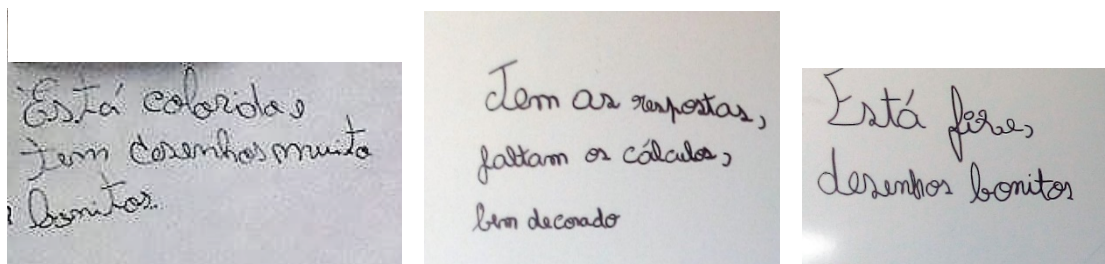 Está colorido e
tem desenhos muito
bonitos.
Tem as respostas,
faltam os cálculos,
bem decorado
Está fixe,
desenhos bonitos